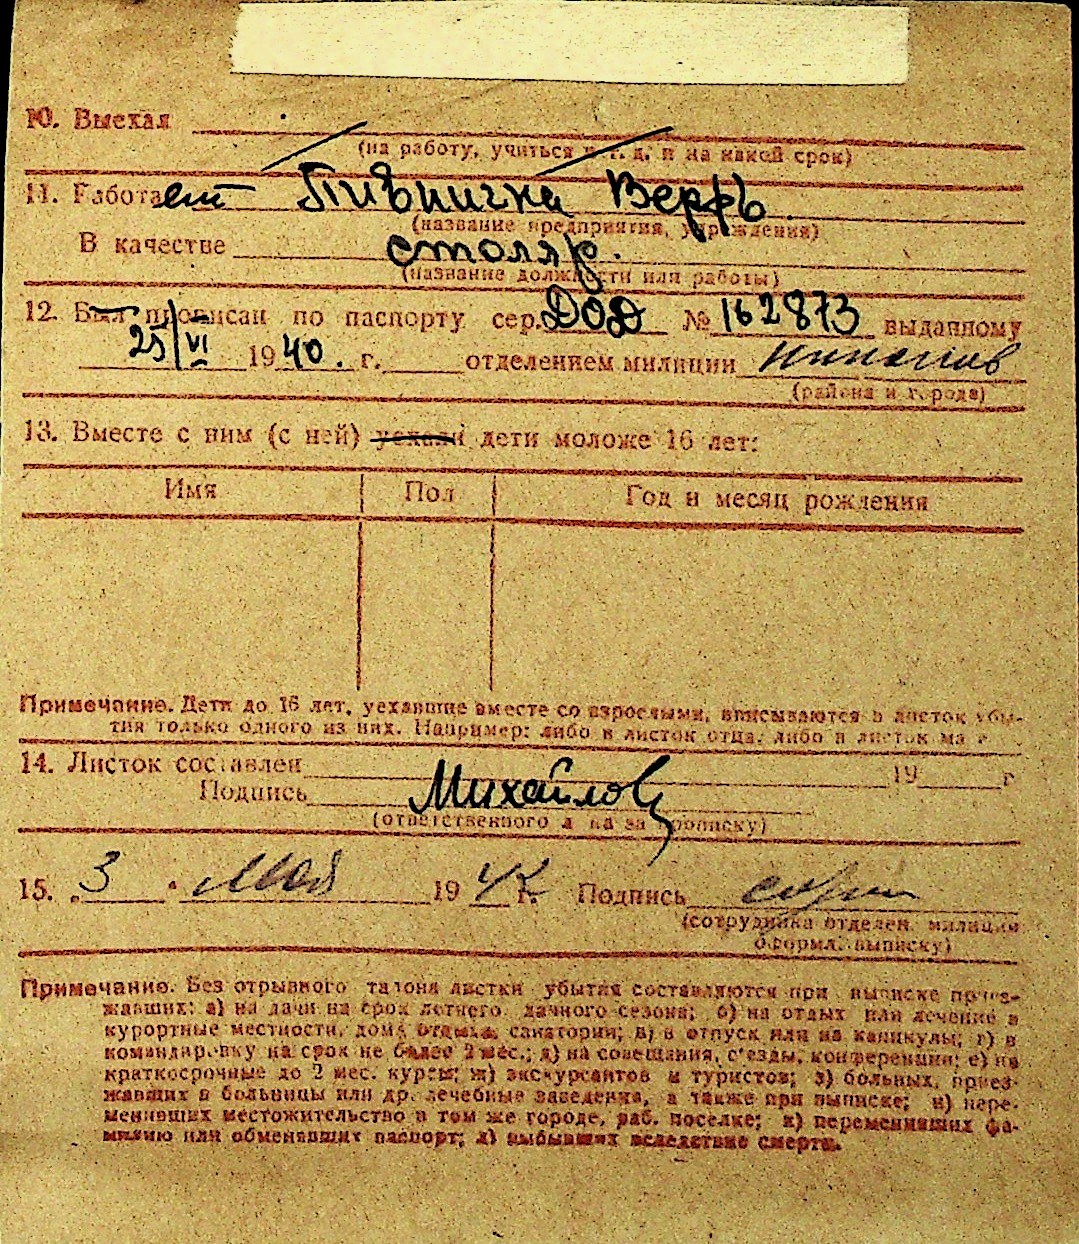 10. Выехал
(на работу, учиться и т. д. и на какой срок)
11. Работает Пивнична Верфь.
(название предприятия, учреждения)
В качестве столяр.
(название должности или работы)
12. Был прописан по паспорту сер. ДОД № 162873 выданному
25/VI 1940. г. отделением милиции
(района и города)
13. Вместе с ним (с ней) уехали дети моложе 16 лет:
Имя Пол Год и месяц рождения
Примечание. Дети до 16 лет, уехавшие вместе со взрослыми, вписываются в листок убы-
тия только одного из них. Например: либо в листок отца, либо в листок ма
14. Листок составлен 19 г
Подпись Михайлов
(ответственного за прописку)
15. 3 Мая 1942 г. Подпись
(сотрудника отделен. милиции
оформл. выписку)
Примечание. Без отрывного талона листки убытия составляются при выписке приез-
жавших: а) на дачи на срок летнего дачного сезона; б) на отдых или лечение в
курортные местности, дома отдыха, санатории; в) в отпуск или на каникулы; г) в
командировку на срок не более 2 мес.; д) на совещания, съезды, конференции; е) на
краткосрочные до 2 мес. курсы; ж) экскурсантов и туристов; з) больных, приез-
жавших в больницы или др. лечебные заведения, а также при выписке; и) пере-
менивших местожительство в том же городе, раб. поселке; к) переменивших фа-
милию или обменявших паспорт; л) выбывших вследствие смерти.